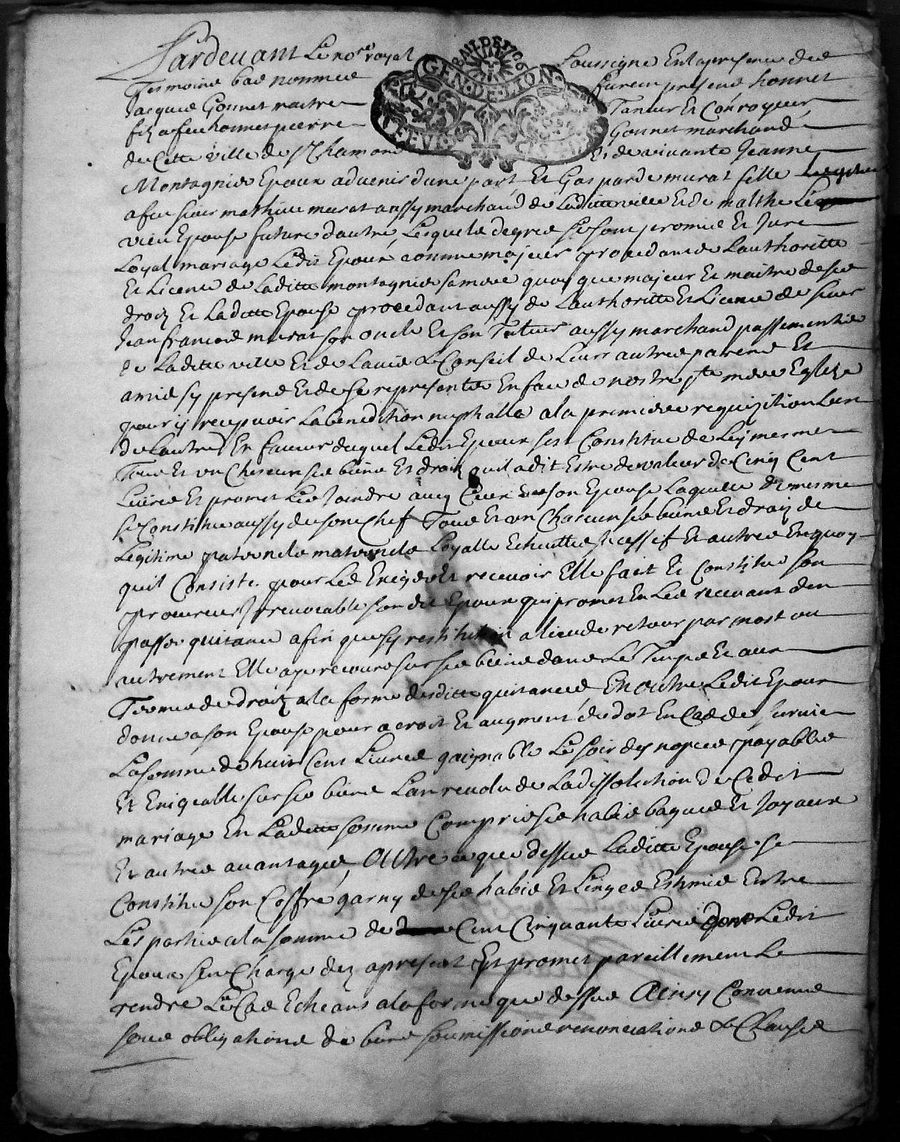 Pardevant Le no.re royal soussigne Et en presence des
Tesmoins bas nommes furent present honnet
Jacques Gonnet maitre Taneur Et Conroyeur
filz a feu honnet pierre Gonnet marchand
GEN·DE·LION
de Cette ville de St Chamond Et de vivante Jeanne
Montagnie Epoux advenir d'une part Et Gasparde murat fille
a feu sieur mathieu murat aussy marchand de Laditte ville Et de malthe
vieu Epouse future d'autre, Lesquels de gré se sont promis Et Juré
Loyal mariage Ledit Epoux comme majeur procedant de L'authoritté
Et Licence de Laditte montagnie sa mere quoy que majeur Et maitre de ses
droitz Et Laditte Epouse procedant aussy de L'authoritté Et Licence de sieur
Jean francois murat son oncle Et son Tuteur aussy marchand passementier
de Laditte ville Et de L'avis Et Conseil de Leurs autres parens Et
amis sy presens Et de se representer En face de nostre ste mere Eglize
pour y recepvoir La benediction nuptialle a la premiere requizition L'un
de L'autre En faveur duquel Ledit Epoux s'est Constitue de Luy mesme
Tous Et un Chascun ses biens Et droitz qu'il a dit Estre de valeur de Cinq Cent
Livres Et promet Les Joindre avec Ceux de son Epouse Laquelle de mesme
se Constitue aussy de son Chef Tous Et un Chascun ses biens Et droitz de
Legitime paternels maternels Loyalle Echeutte sucessif Et autres En quoy
qu'il Consiste pour Les Exiger Et recevoir Elle fait Et Constitue son
procureur Irrevocable son dit Epoux qui promet En Les recevant d'en
passer quitance afin que sy restitution a lieu de retour par mort ou
autrement Elle aye recours sur ses biens dans Le Temps Et aux
Termes de droitz a la forme desdittes quitances En outre Ledit Epoux
donne a son Epouse pour acroit Et augment de dot En Cas de survie
La somme de huit Cent Livres gaignable Le soir des nopces payable
Et Exigeable sur ses biens L'an revolu de La dissolution de Cedit
mariage En Laditte somme Compris ses habis bagues Et Joyaux
Et autres avantages Outre ce que dessus Laditte Epouse se
Constitue son Coffre garny de ses habis Et Linges Estimes Entre
Les parties a la somme de Cent Cinquante Livres dont Ledit
Epoux s'en Charge des apresent Et promet pareillement Le
rendre Le Cas Echeant a la forme que dessus Ainsy Convenu
sous obligations de biens soumissions renonciations Et Clauses